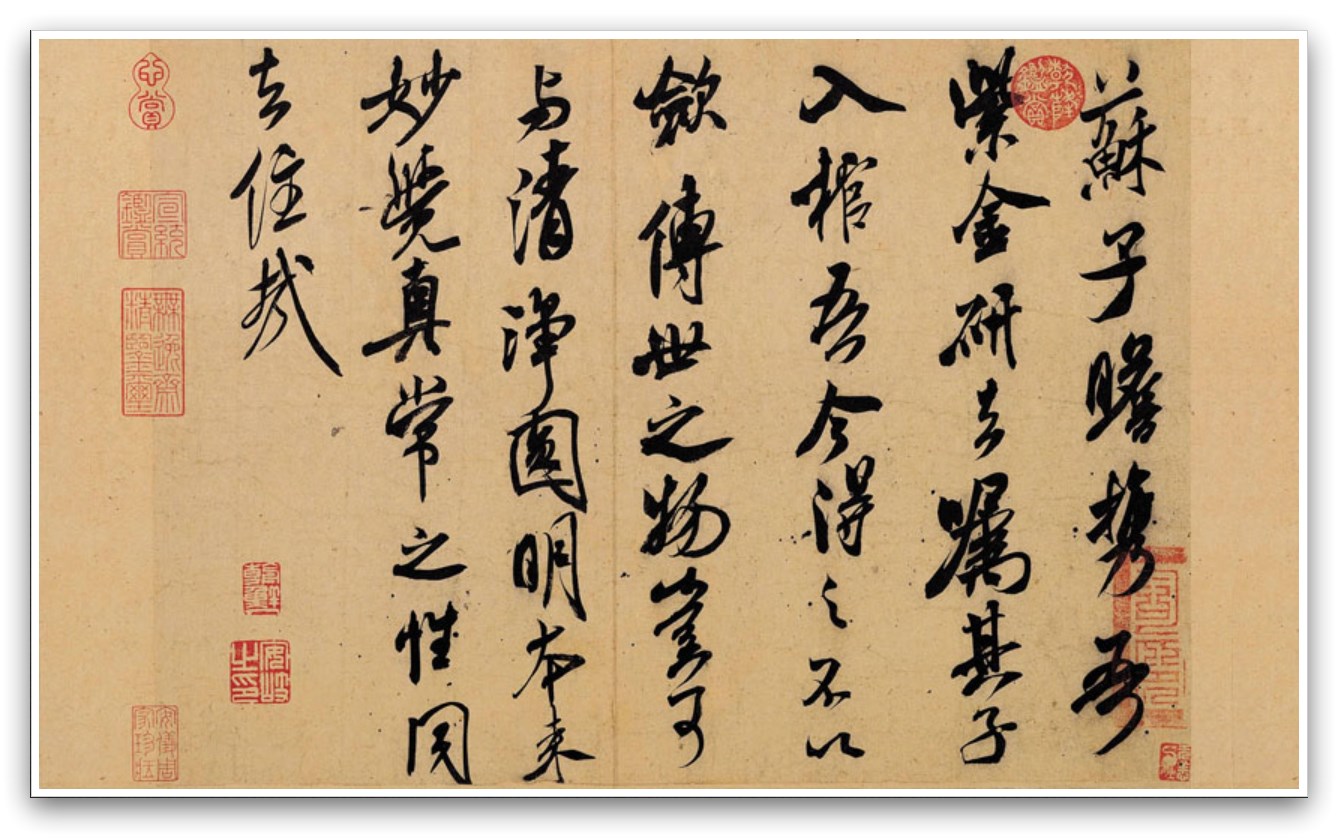 蘇子瞻携吾
紫金研去囑其子
入棺吾今得之不以
斂傳世之物豈可
与清淨圓明本来
妙覺真常之性同
去住哉